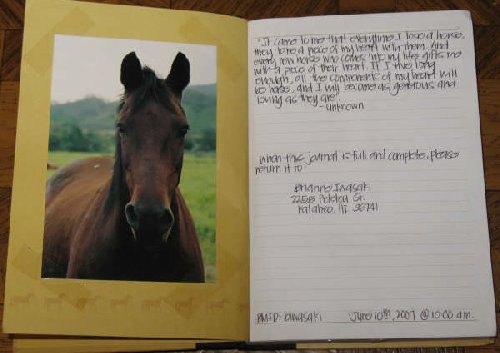 "It came to me that everytime I lose a horse,
they take a piece of my heart with them. And
every new horse who comes into my life gifts me
with a piece of their heart. If I live long
enough, all the components of my heart will
be horse, and I will become as generous and
loving as they are."
- Unknown
When this journal is full and complete, please
return it to:
Brianne Iwasaki
Kalaheo, HI 96741
June 10th, 2007 @ 10:00 a.m.